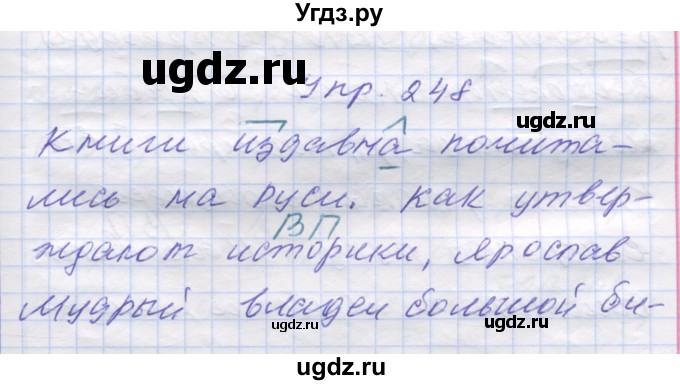 Угдз.ру
ugdz.ru
Упр. 248
ugdz.ru
Книги издавна почита-
лись на Руси. Как утвер-
ВП
ждают историки, Ярослав
Мудрый владел большой би-
ugdz.ru
ugdz.ru
ugdz.ru